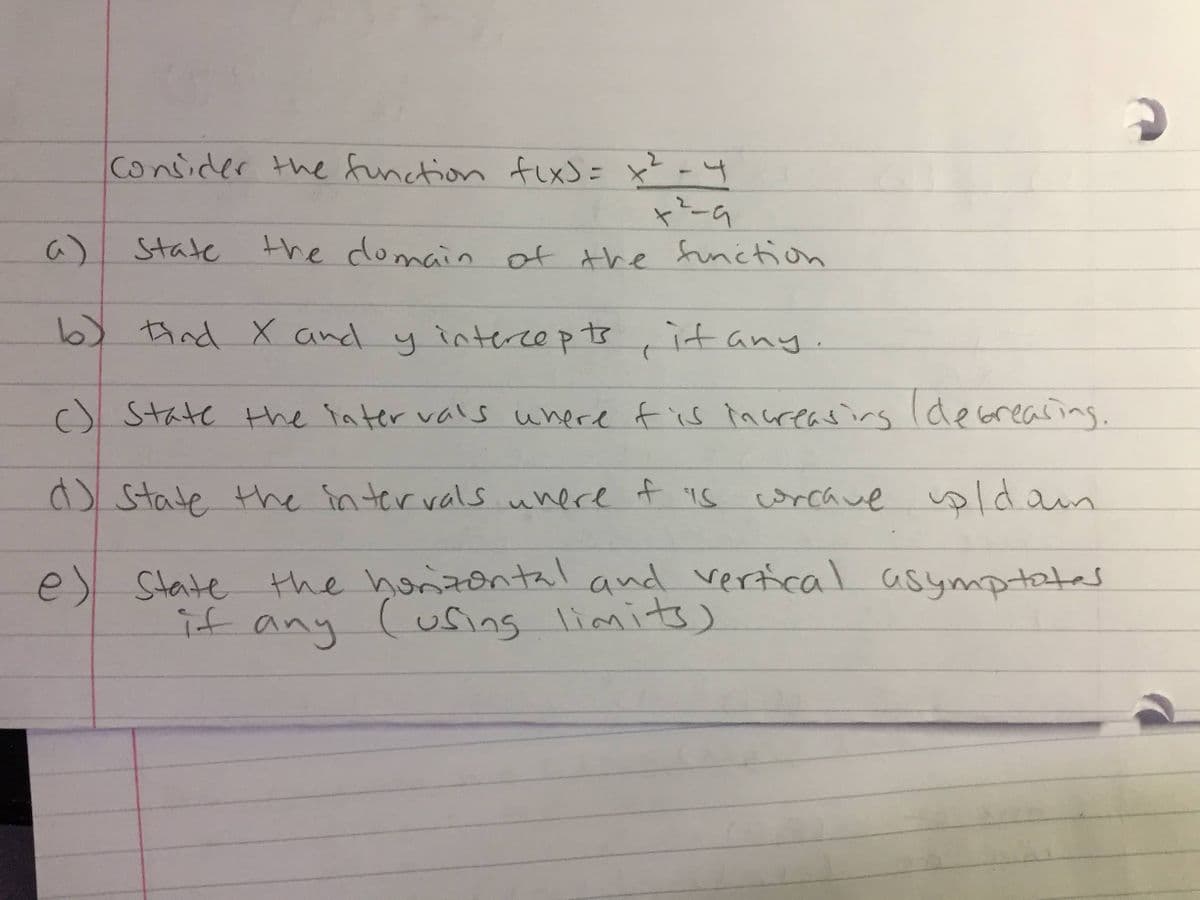 Consider the function f(x) = x² - 4
x²-9
a) State the domain of the function
b) find x and y intercepts, if any.
c) State the intervals where f is increasing / decreasing.
d) State the intervals where f is concave up/down
e) State the horizontal and vertical asymptotes
if any (using limits)